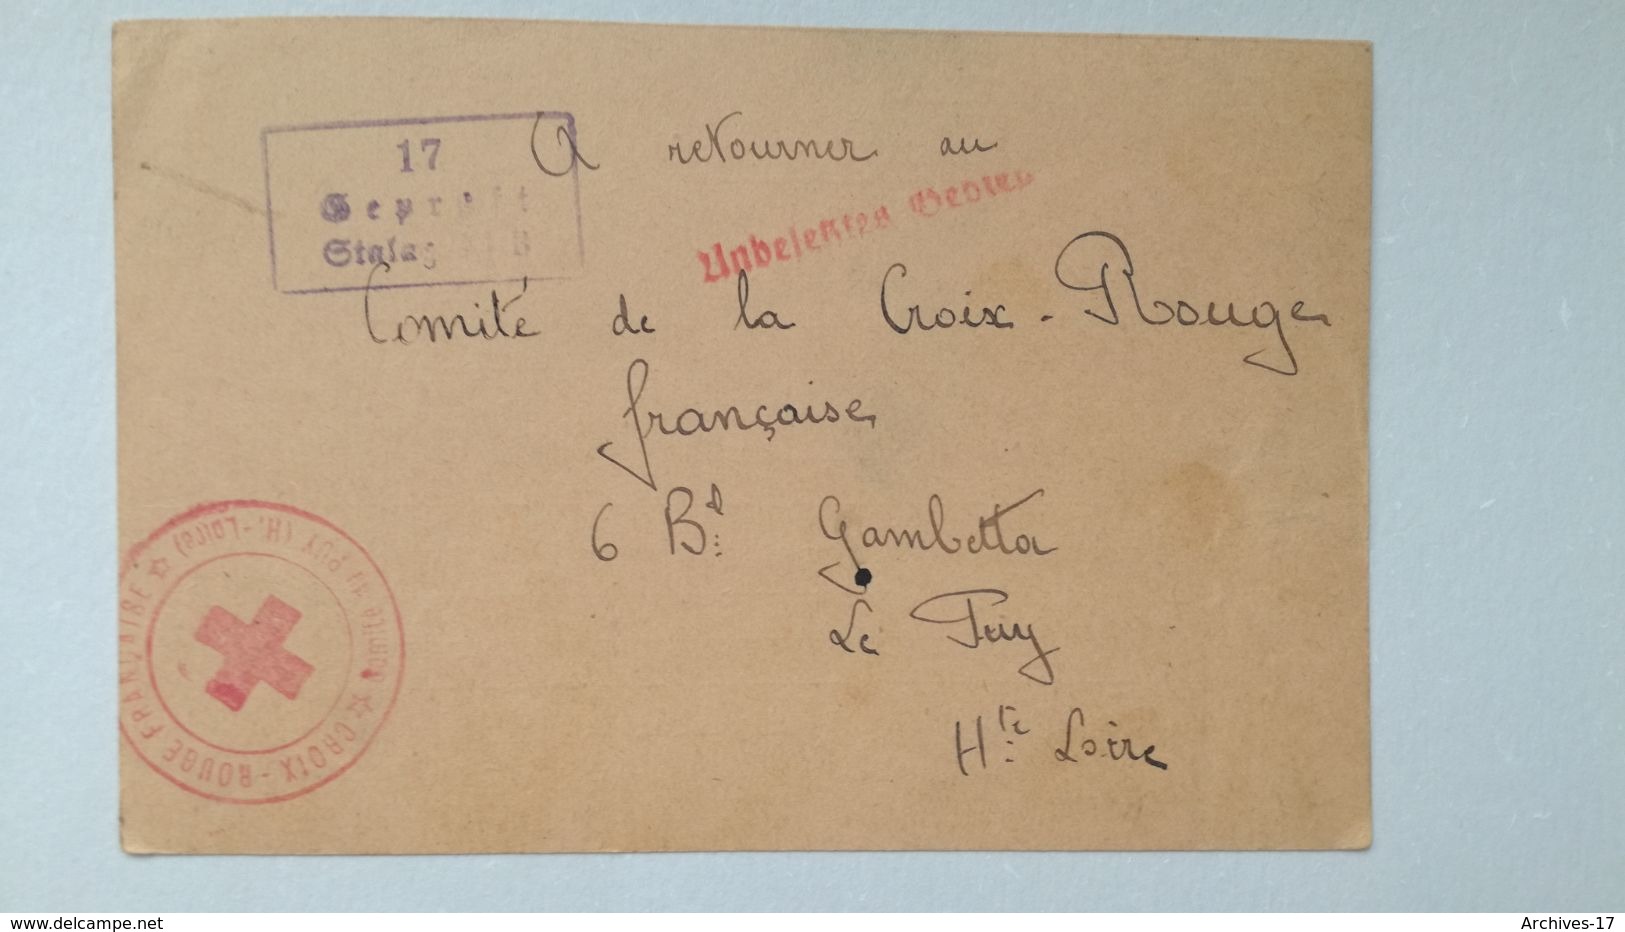 17
Geprüft
Stalag B
A retourner au
Unbelehrten
Comité de la Croix-Rouge
française
6 Bd. Gambetta
Le Puy
Hte. Loire
CROIX-ROUGE FRANÇAISE ☆ Comité du PUY (H.-Loire) ☆
www.delcampe.net
Archives-17